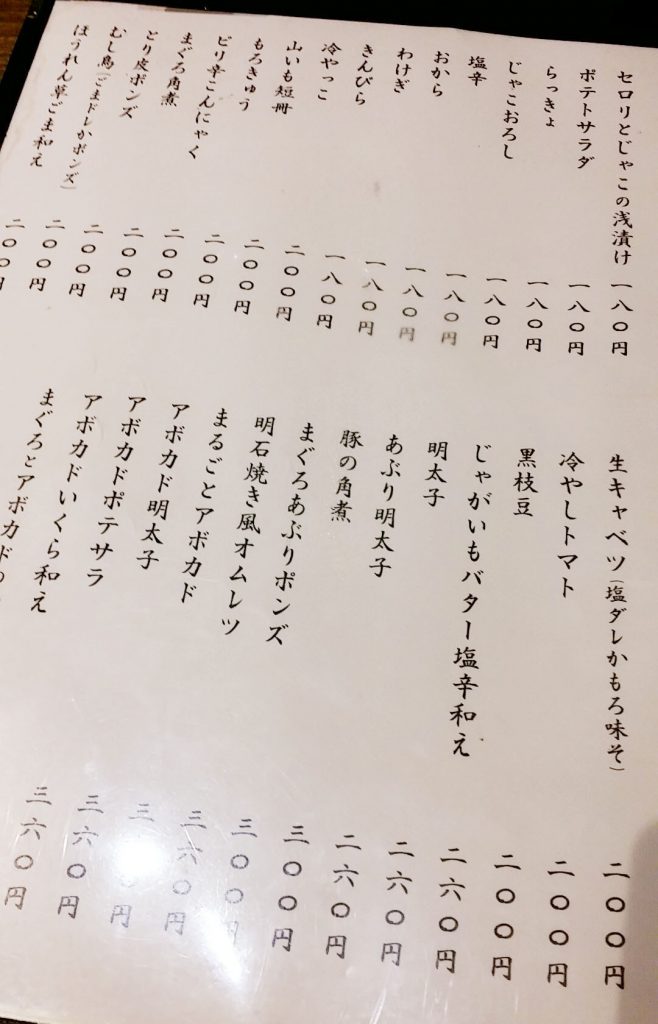 セロリとじゃこの浅漬け 一八〇円
ポテトサラダ 一八〇円
らっきょ 一八〇円
じゃこおろし 一八〇円
塩辛 一八〇円
おから 一八〇円
わけぎ 一八〇円
きんぴら 一八〇円
冷やっこ 二〇〇円
山いも短冊 二〇〇円
もろきゅう 二〇〇円
ピリ辛こんにゃく 二〇〇円
まぐろ角煮 二〇〇円
とり皮ポンズ 二〇〇円
むし鳥(ごまドレかポンズ) 二〇〇円
ほうれん草ごま和え 二〇〇円
生キャベツ(塩ダレかもろ味そ) 二〇〇円
冷やしトマト 二〇〇円
黒枝豆 二〇〇円
じゃがいもバター塩辛和え 二六〇円
明太子 二六〇円
あぶり明太子 二六〇円
豚の角煮 三〇〇円
まぐろあぶりポンズ 三〇〇円
明石焼き風オムレツ 三六〇円
まるごとアボカド
アボカド明太子 三六〇円
アボカドポテサラ 三六〇円
アボカドいくら和え
まぐろとアボカドの